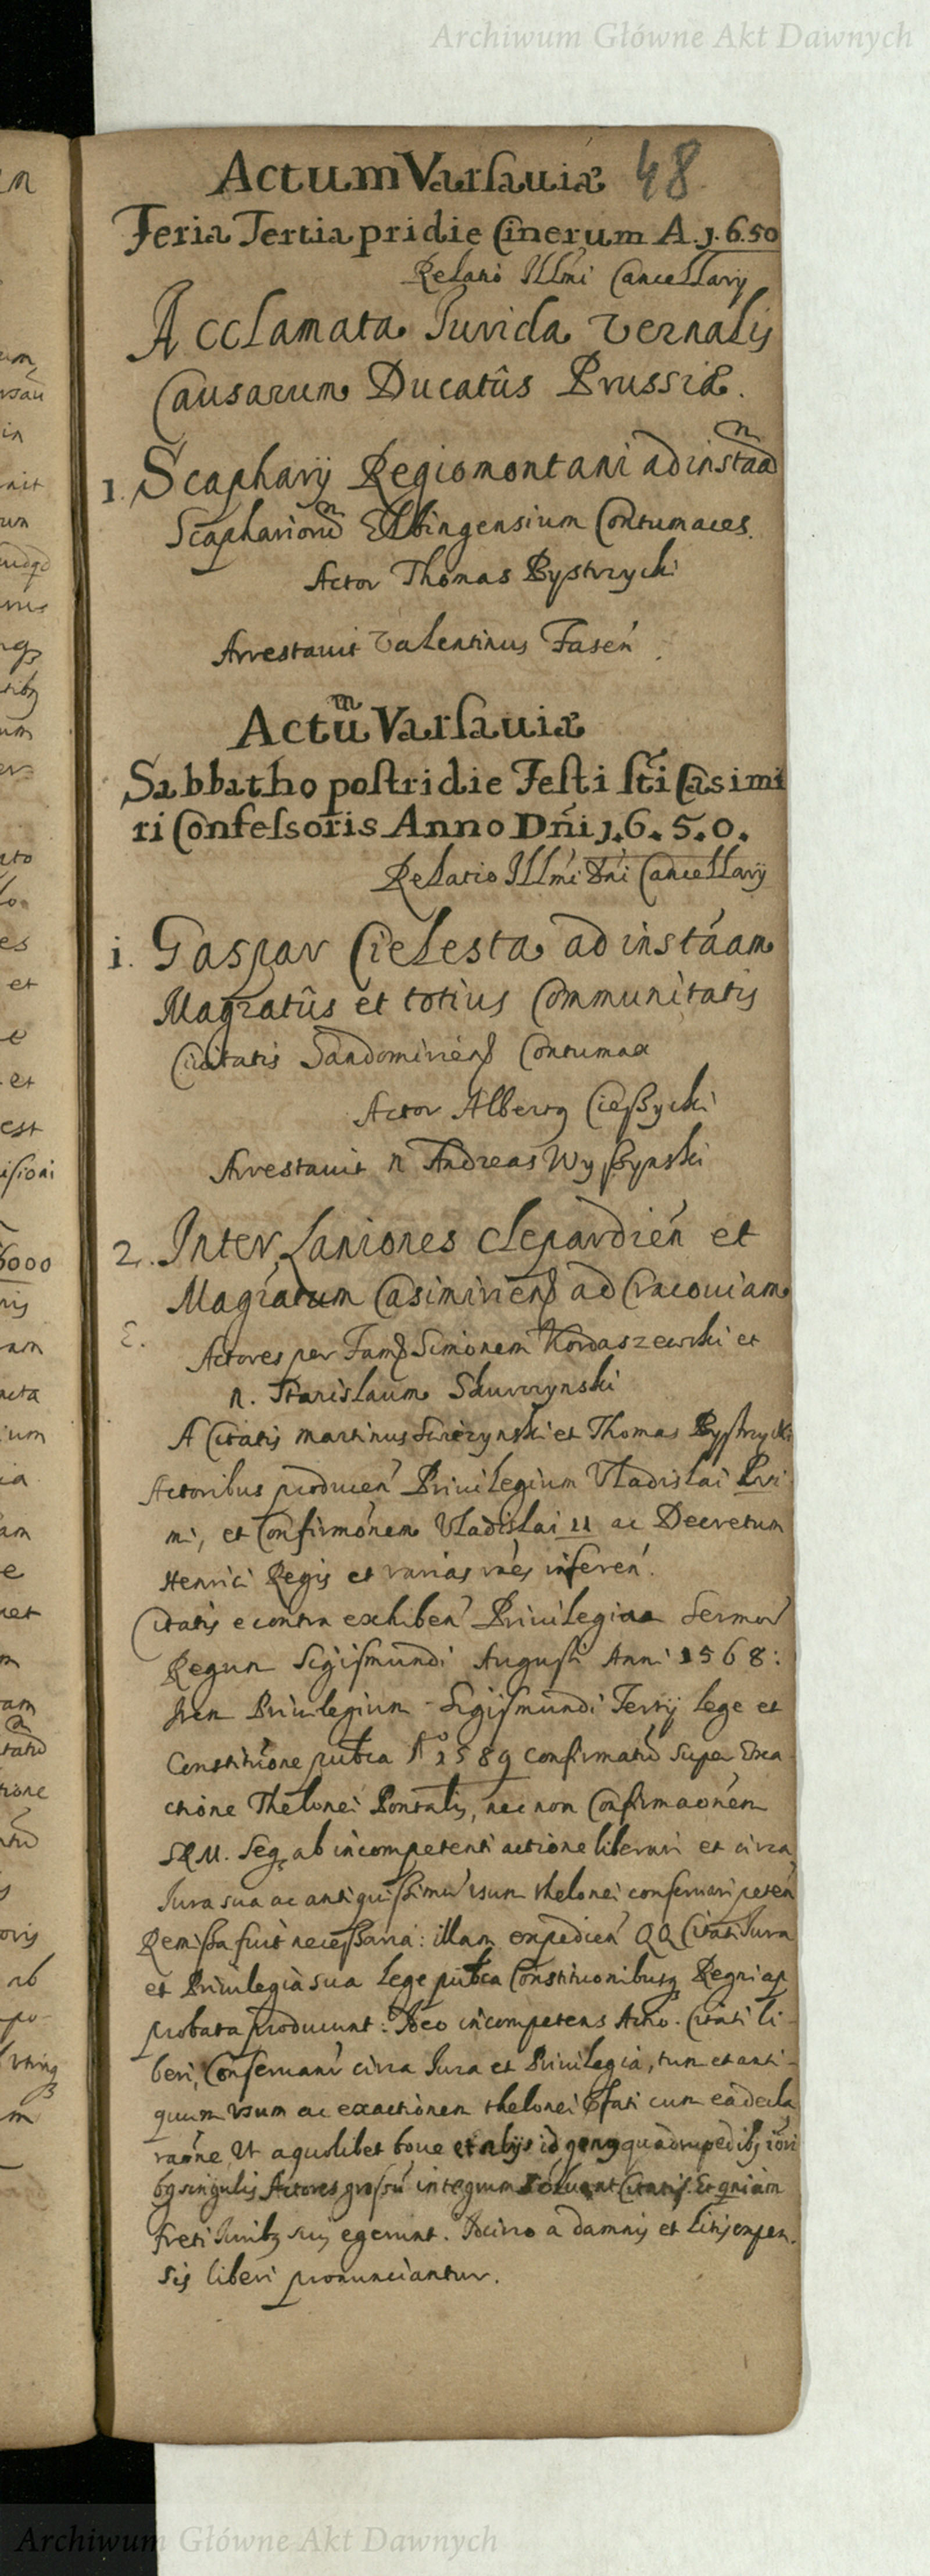 Archiwum Główne Akt Dawnych
Actum Varsauiæ 48
Feria Tertia pridie Cinerum A. 1.6.50
Relatio Illmi Cancellarij
Acclamata Iuridica vernalis
Causarum Ducatûs Prussiæ.
1. Scapharij Regiomontani ad instaã
Scaphariorũ Elbingensium Contumaces.
Actor Thomas Bystrzycki
Arrestauit Valentinus Fasen
Actũ Varsauiæ
Sabbatho postridie Festi Sti Casimi
ri Confessoris Anno Dñi 1.6.5.0.
Relatio Illmi Dni Cancellarij
1. Gaspar Cielesta ad instáam
Magratûs et totius Communitatis
Ciuitatis Sandomirien Contumax
Actor Albertg Cieszycki
Arrestauit n Andreas Wyszynski
2. Inter Laniones Clepardień et
Magratum Casimirien ad Cracouiam
Actores per Fam Simonem Kordaszewski et
n. Stanislaum Skurczynski
A Citatis Martinus et Thomas Bystrzycki
Actoribus producen Priuilegium Vladislai Pri
mi, et Confirmónem Vladislai 11 ac Decretum
Henrici Regis et varias rnés inseren.
Citatis e contra exhiben Priuilegia Sermor
Regum Sigismundi Augusti Anni 1568:
Item Priuilegium Sigismundi Tertij lege et
Constituóne pubca Ao 1589 confirmatũ super Exa
ctióne Thelonei Pontalis, nec non Confirmaónem
SRM. Seq. ab incompetenti actione liberari et circa
Iura sua ac antiquissimũ vsum thelonei conseruari peten
Remissa fuit necessaria: illam expedien QQ Citati Iura
et Priuilegia sua lege pubca Constituonibusq Regni ap
probata producunt: Ideo incompetens Actio. Citati li-
beri, Conseruanr circa Iura et Priuilegia, tum et anti-
quum vsum ac exactiónem thelonei Pfati cum ea decla
raóne Vt a quolibet boue et alijs id geng quadrupedibg
bg singulis Actores grossũ integrum soluant Citatis. Et qniam
freti Iuribg suis egerunt. Idcirco a damnis et litis expen
sis liberi pronunciantur.
Archiwum Główne Akt Dawnych